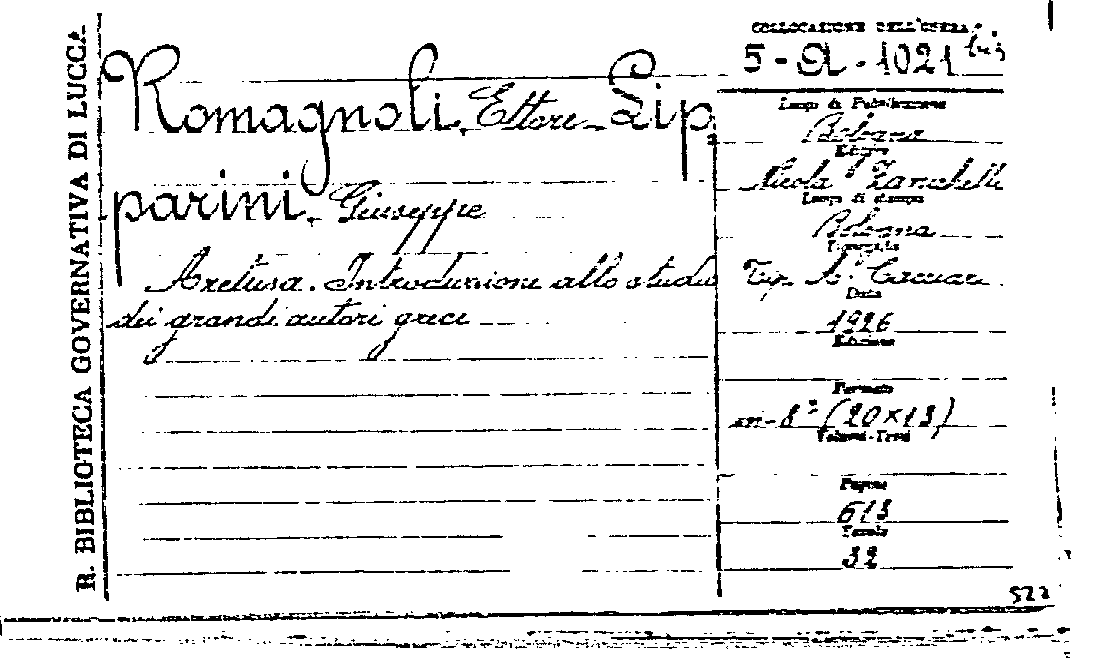 R. BIBLIOTECA GOVERNATIVA DI LUCCA
Romagnoli. Ettore - Lip
parini. Giuseppe
Aretusa. Introduzione allo studio
dei grandi autori greci
COLLOCAZIONE DELL'OPERA
5 - A - 1021 bis
Luogo di Pubblicazione
Bologna
Editore
Nicola Zanichelli
Luogo di stampa
Bologna
Tipografia
Tip. L. Cacciari
Data
1926
Edizione
Formato
in-8° (20×13)
Volumi-Tomi
Pagine
613
Tavole
32
522